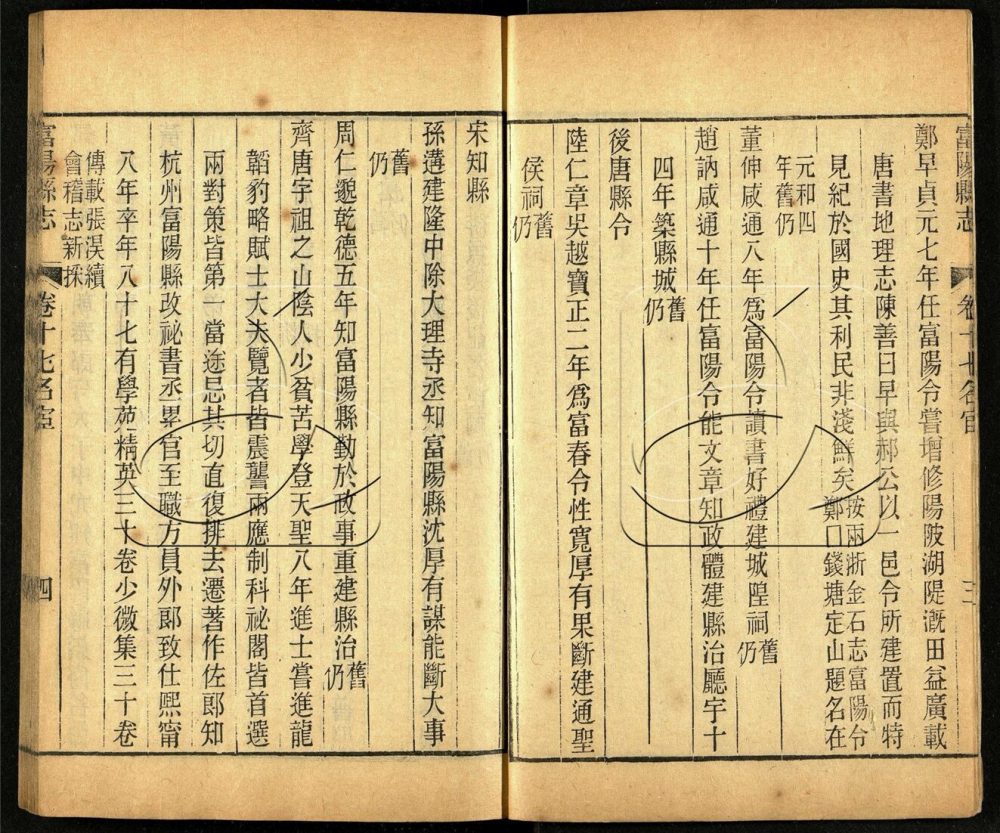 富陽縣志 卷十七名宦 三
鄭早貞元七年任富陽令嘗增修陽陂湖隄漑田益廣載
唐書地理志陳善曰早與郝公以一邑令所建置而特
見紀於國史其利民非淺鮮矣按兩浙金石志富陽令鄭囗錢塘定山題名在
元和四年舊仍
董伸咸通八年爲富陽令讀書好禮建城隍祠舊仍
趙訥咸通十年任富陽令能文章知政體建縣治廳宇十
四年築縣城舊仍
後唐縣令
陸仁章吳越寶正二年爲富春令性寬厚有果斷建通聖
侯祠舊仍
宋知縣
孫溝建隆中除大理寺丞知富陽縣沈厚有謀能斷大事
舊仍
周仁邈乾德五年知富陽縣勤於政事重建縣治舊仍
齊唐字祖之山陰人少貧苦學登天聖八年進士嘗進龍
韜豹略賦士大夫覽者皆震讋兩應制科祕閣皆首選
兩對策皆第一當塗忌其切直復排去遷著作佐郎知
杭州富陽縣改祕書丞累官至職方員外郎致仕熙甯
八年卒年八十七有學苑精英三十卷少微集三十卷
傳載張淏續會稽志新採
富陽縣志 卷十七名宦 四